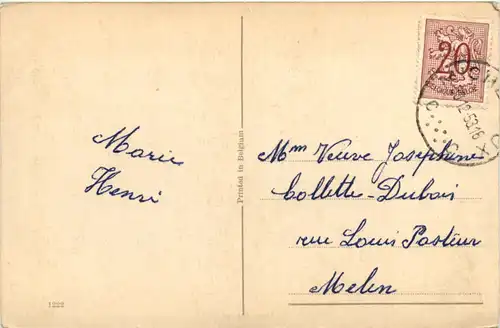 20
BELGIQUE-BELGIE
Marie
Henri
Printed in Belgium
Mm Veuve Josephine
Collette-Dubois
rue Louis Pasteur
Melen
1222